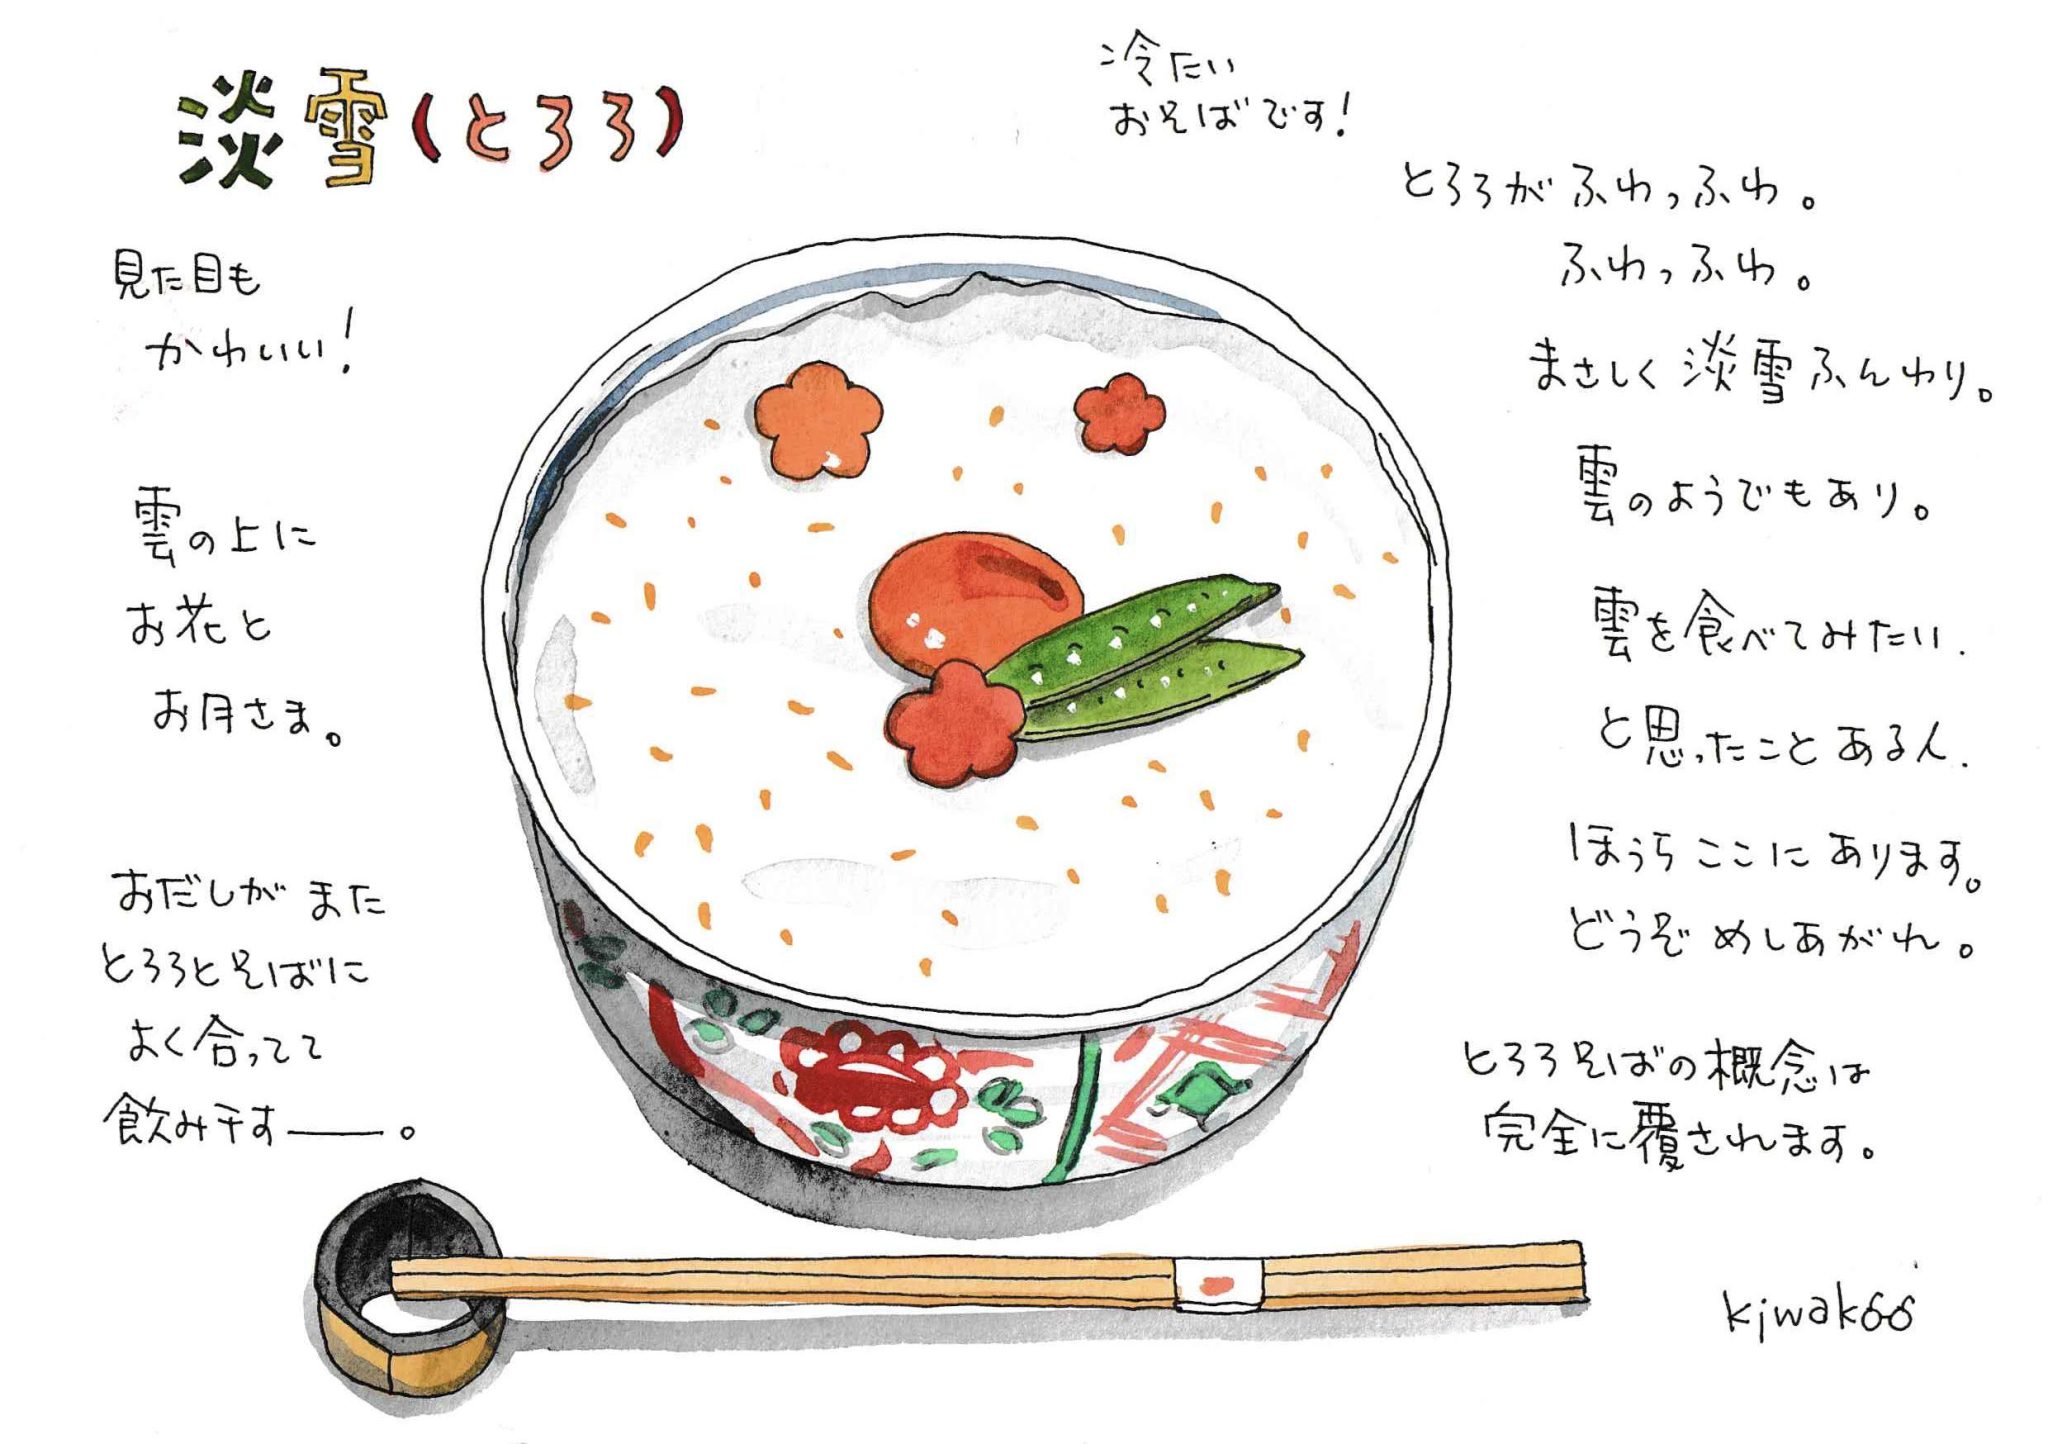 淡雪(とろろ)
冷たい
おそばです!
見た目も
かわいい!
雲の上に
お花と
お月さま。
おだしがまた
とろろとそばに
よく合ってて
飲み干すー。
とろろがふわっふわ。
ふわっふわ。
まさしく淡雪ふんわり。
雲のようでもあり。
雲を食べてみたい.
と思ったことある人.
ほうらここにあります。
どうぞめしあがれ。
とろろそばの概念は
完全に覆されます。